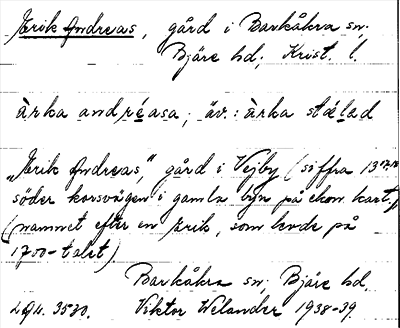 Erik Andreas, gård i Barkåkra sn;
Bjäre hd; Krist. l.
àrka andréasa; äv.: àrka stælad
„Erik Andreas,” gård i Vejby (siffra 13
söder korsvägen i gamla byn på ekon. kart.)
(namnet efter en Erik, som levde på
1700-talet).
Barkåkra sn; Bjäre hd.
Viktor Welander 1938-39.